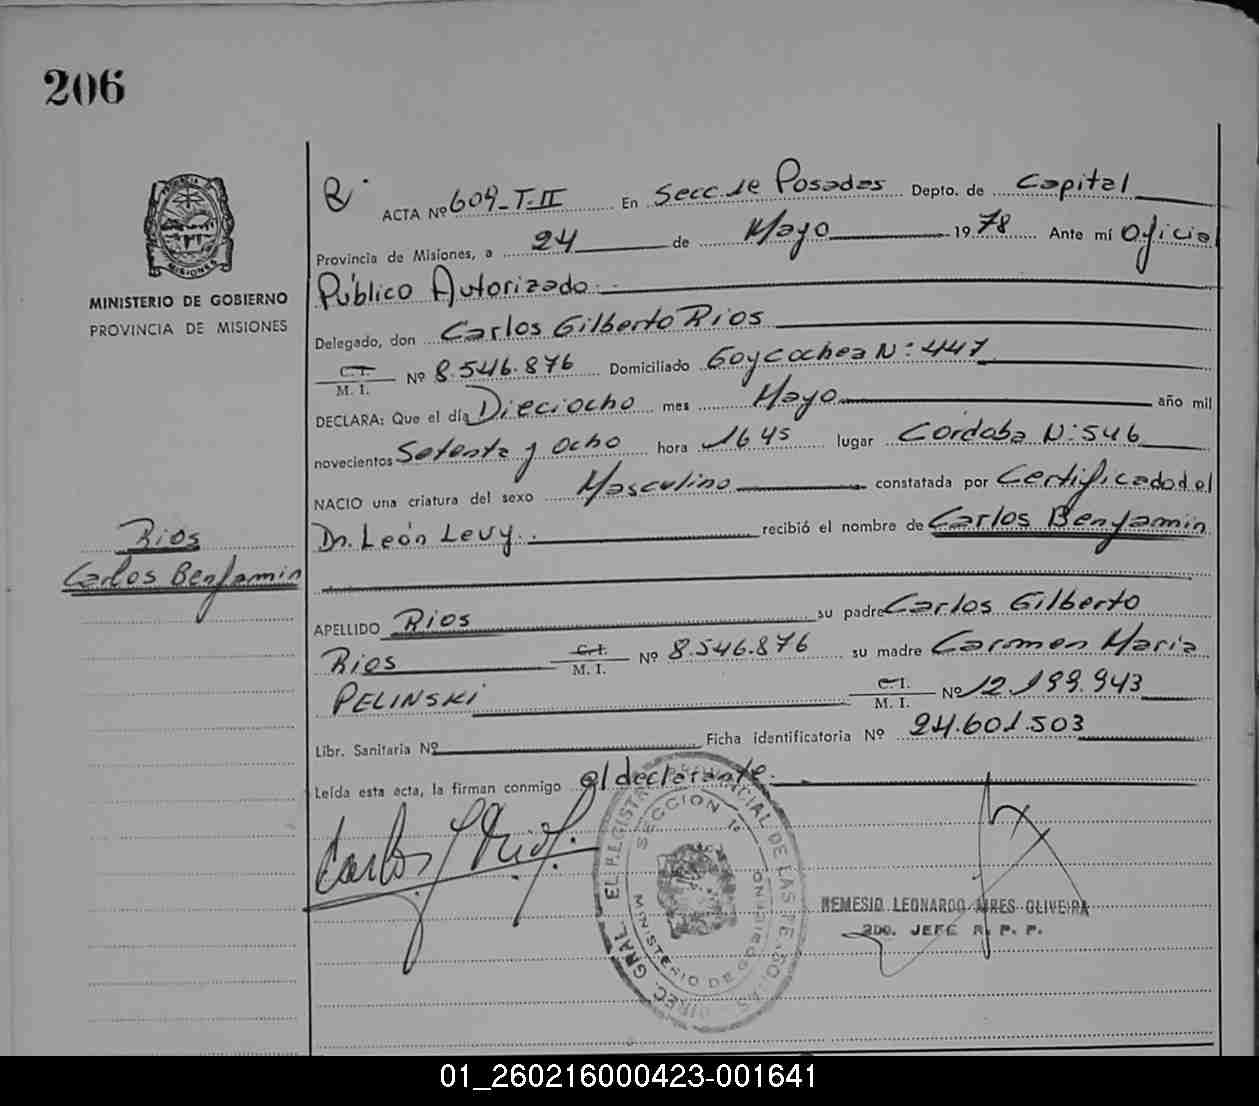 206
PROVINCIA DE MISIONES
MINISTERIO DE GOBIERNO
PROVINCIA DE MISIONES
Rios
Carlos Benjamin
R.
ACTA Nº 609-T-II En Secc. de Posadas Depto. de Capital
Provincia de Misiones, a 24 de Mayo 1978 Ante mí Oficial
Público Autorizado
Delegado, don Carlos Gilberto Rios
C.I. M. I. Nº 8.546.876 Domiciliado Goycochea Nº 447
DECLARA: Que el día Dieciocho mes Mayo año mil
novecientos Setenta y Ocho hora 1645 lugar Córdoba Nº 546
NACIO una criatura del sexo Masculino constatada por Certificado del
Dr. León Levy. recibió el nombre de Carlos Benjamin
APELLIDO Rios su padre Carlos Gilberto
Rios C.I. M. I. Nº 8.546.876 su madre Carmen Maria
PELINSKI C.I. M. I. Nº 12.199.943
Libr. Sanitaria Nº Ficha identificatoria Nº 24.601.503
Leída esta acta, la firman conmigo el declarante.
Carlos G Rios
DIREC. GRAL. EL REGISTRO PROVINCIAL DE LAS PERSONAS
SECCION 1º
MINISTERIO DE GOBIERNO
REMESIO LEONARDO AIRES OLIVEIRA
2DO. JEFE R. P. P.
01_260216000423-001641